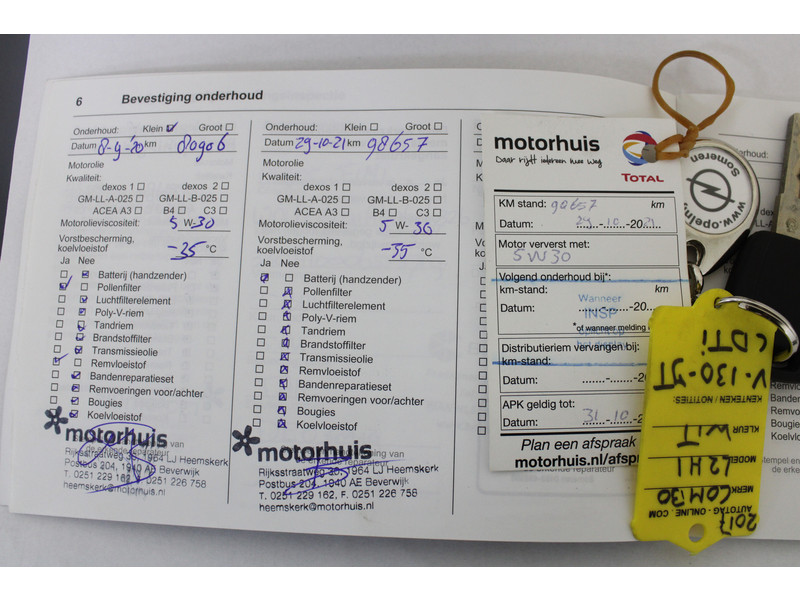 6 Bevestiging onderhoud
Onderhoud: Klein Groot
Datum 8-9-'20 km 80906
Motorolie
Kwaliteit:
dexos 1 dexos 2
GM-LL-A-025 GM-LL-B-025
ACEA A3 B4 C3
Motorolieviscositeit: 5 W-30
Vorstbescherming,
koelvloeistof -35 °C
Ja Nee
Batterij (handzender)
Pollenfilter
Luchtfilterelement
Poly-V-riem
Tandriem
Brandstoffilter
Transmissieolie
Remvloeistof
Bandenreparatieset
Remvoeringen voor/achter
Bougies
Koelvloeistof
motorhuis
Postbus 204, 1940 AE Beverwijk
T. 0251 229 162, F. 0251 226 758
heemskerk@motorhuis.nl
Onderhoud: Klein Groot
Datum 29-10-21 km 98657
Motorolie
Kwaliteit:
dexos 1 dexos 2
GM-LL-A-025 GM-LL-B-025
ACEA A3 B4 C3
Motorolieviscositeit: 5 W- 30
Vorstbescherming,
koelvloeistof -35 °C
Ja Nee
Batterij (handzender)
Pollenfilter
Luchtfilterelement
Poly-V-riem
Tandriem
Brandstoffilter
Transmissieolie
Remvloeistof
Bandenreparatieset
Remvoeringen voor/achter
Bougies
Koelvloeistof
motorhuis
Rijksstraatweg 30, 1964 LJ Heemskerk
Postbus 204, 1940 AE Beverwijk
T. 0251 229 162, F. 0251 226 758
heemskerk@motorhuis.nl
motorhuis
Daar rijdt iedereen mee weg
TOTAL
KM stand: 98657 km
Datum: 29-10-2021
Motor ververst met:
5W30
Volgend onderhoud bij*:
km-stand: km
Wanneer
Datum: -20
INSP
*of wanneer melding
Distributieriem vervangen bij:
km-stand:
Datum: -20
APK geldig tot:
Datum: 31-10-2
Plan een afspraak
motorhuis.nl/afspr
Someren
www.opelnl
CDTi
V-130-JT
KENTEKEN / NOTITIES:
KLEUR WIT
MODEL L2H1
MERK COMBO
AUTOTAG-ONLINE.COM
2017